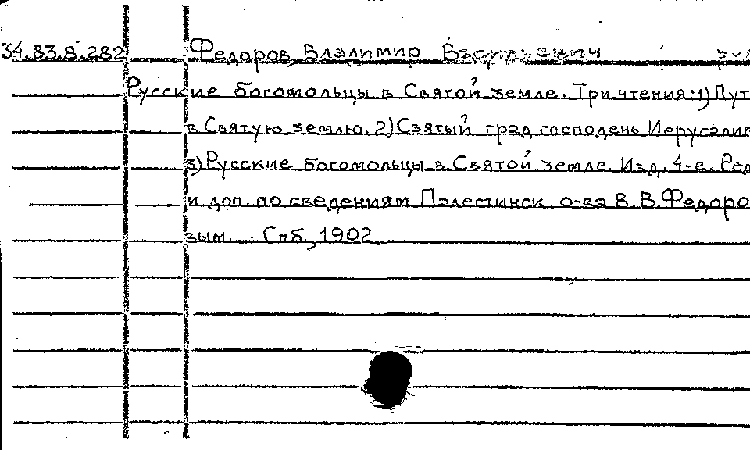 34.83.8.282 Федоров, Владимир Васильевич
Русские богомольцы в Святой земле. Три чтения: 1) Пут
в Святую землю. 2) Святый град господень Иерусалим
3) Русские богомольцы в Святой земле. Изд. 4-е. Ред.
и доп. по сведениям Палестинск. о-ва В. В. Федоро
вым. Спб, 1902